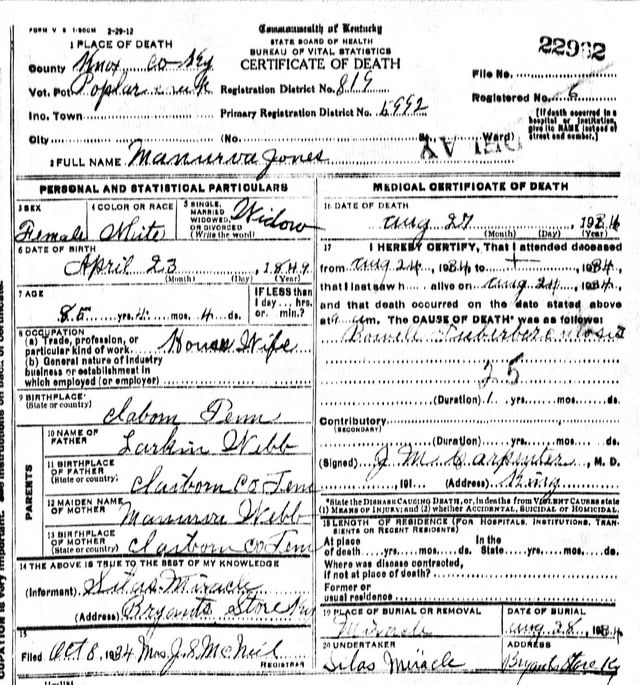 FORM V S 1-500M 2-29-12
Commonwealth of Kentucky
STATE BOARD OF HEALTH
BUREAU OF VITAL STATISTICS
CERTIFICATE OF DEATH
22982
1 PLACE OF DEATH
County Knox Co Ky
Vot. Pct Poplar creek
Registration District No. 819
File No.
Inc. Town
Primary Registration District No. 5992
Registered No. 6
City (No. St. Ward)
[If death occurred in a hospital or institution, give its NAME instead of street and number.]
2 FULL NAME Manurva Jones
PERSONAL AND STATISTICAL PARTICULARS
3 SEX Female
4 COLOR OR RACE White
5 SINGLE, MARRIED WIDOWED, OR DIVORCED (Write the word) Widow
6 DATE OF BIRTH
April 23 1849
(Month) (Day) (Year)
7 AGE
85 yrs. 4 mos. 4 ds.
IF LESS than 1 day... hrs. or min.?
8 OCCUPATION
(a) Trade, profession, or particular kind of work House Wife
(b) General nature of industry
business or establishment in
which employed (or employer)
9 BIRTHPLACE
(State or country)
Claborn Tenn
PARENTS
10 NAME OF FATHER Larkin Webb
11 BIRTHPLACE OF FATHER
(State or country) Claiborn Co Tenn
12 MAIDEN NAME OF MOTHER Manurva Webb
13 BIRTHPLACE OF MOTHER
(State or country) Claiborn Co Tenn
14 THE ABOVE IS TRUE TO THE BEST OF MY KNOWLEDGE
(Informant) Silas Miracle
(Address) Bryants Store Ky
15
Filed Oct 8, 1934 Mrs J.S. McNeil
REGISTRAR
MEDICAL CERTIFICATE OF DEATH
16 DATE OF DEATH
Aug 27 1934
(Month) (Day) (Year)
17 I HEREBY CERTIFY, That I attended deceased
from Aug 24, 1934 to 1934,
that I last saw h alive on Aug 24, 1934,
and that death occurred on the date stated above
at m. The CAUSE OF DEATH* was as follows:
Bowell Tuberberculosis
25
(Duration) 1 yrs. mos. ds.
Contributory
(SECONDARY)
(Duration) yrs. mos. ds.
(Signed) J M Carpenter, M. D.
, 191 (Address) King
*State the DISEASE CAUSING DEATH, or, in deaths from VIOLENT CAUSES state
(1) MEANS OF INJURY; and (2) whether ACCIDENTAL, SUICIDAL OR HOMICIDAL.
18 LENGTH OF RESIDENCE (FOR HOSPITALS, INSTITUTIONS, TRANSIENTS OR RECENT RESIDENTS)
At place of death yrs. mos. ds. In the State yrs. mos. ds.
Where was disease contracted,
if not at place of death?
Former or
usual residence
19 PLACE OF BURIAL OR REMOVAL
Miracle
DATE OF BURIAL
Aug 28, 1934
20 UNDERTAKER
Silas Miracle
ADDRESS
Bryants Store Ky